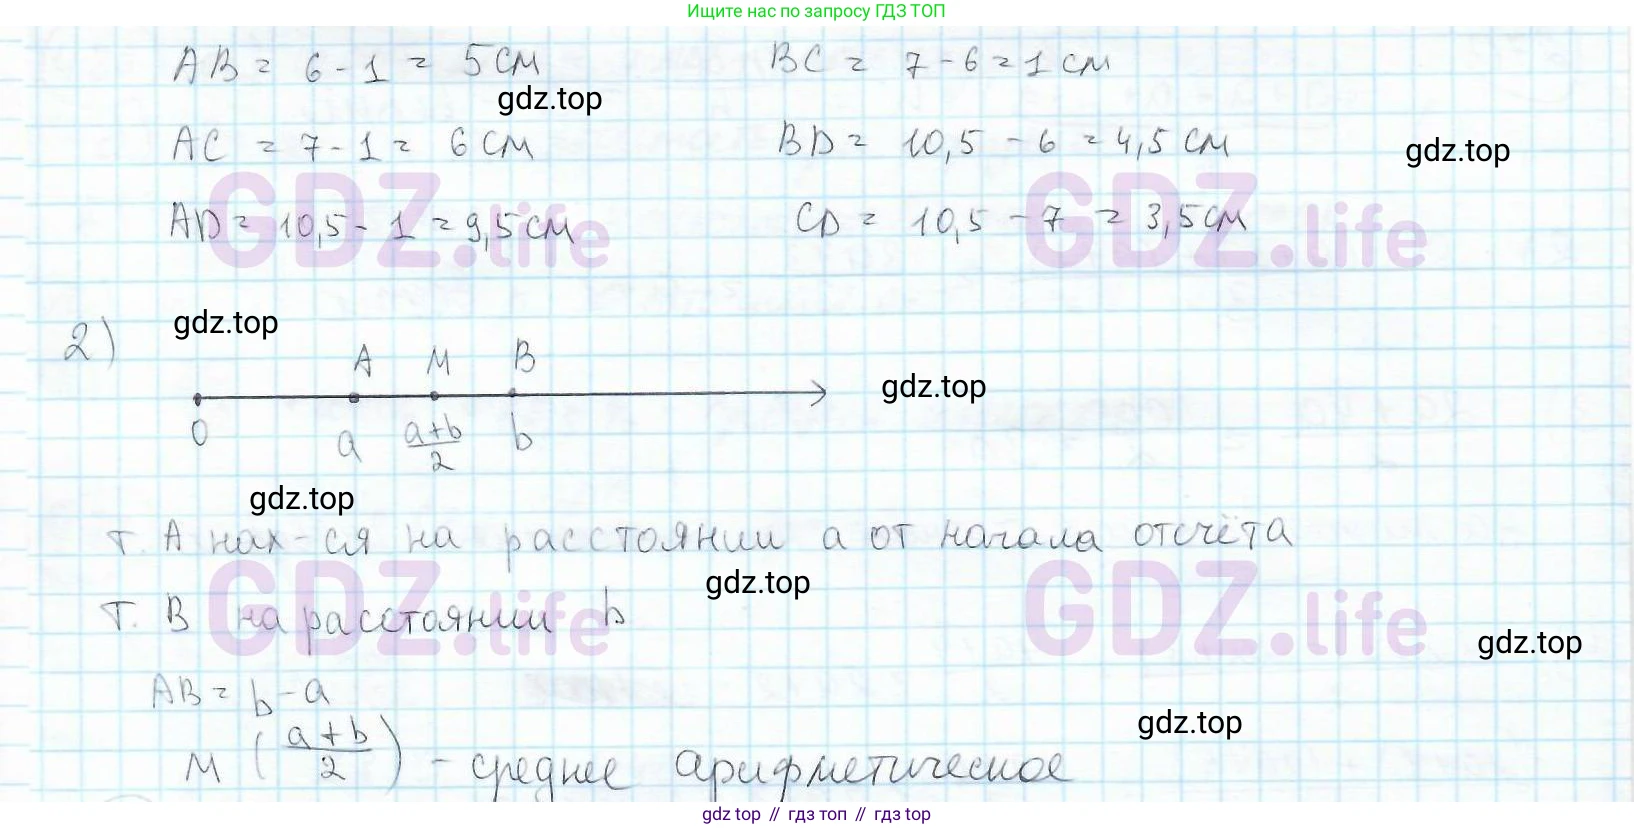 Ищите нас по запросу ГДЗ ТОП
AB = 6 - 1 = 5 см BC = 7 - 6 = 1 см
gdz.top
AC = 7 - 1 = 6 см BD = 10,5 - 6 = 4,5 см
gdz.top
GDZ.life GDZ.life
AD = 10,5 - 1 = 9,5 см CD = 10,5 - 7 = 3,5 см
gdz.top
2) A M B
gdz.top
0 a (a+b)/2 b
gdz.top
т. A нах-ся на расстоянии a от начала отсчёта
gdz.top
GDZ.life GDZ.life
т. B на расстоянии b
gdz.top
AB = b - a
gdz.top
M ((a+b)/2) - среднее арифметическое
gdz top // гдз топ // гдз top